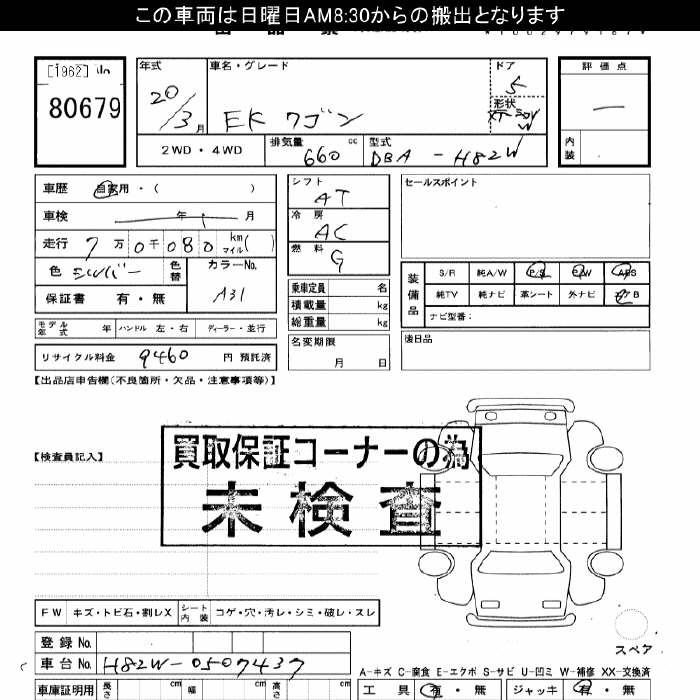 この車両は日曜日AM8:30からの搬出となります
[1962]
80679
年式
20/3月
車名・グレード
EK ワゴン
ドア
5
形状
評価点
内装
2WD・4WD
排気量 660 cc
型式 DBA-H82W
車歴 自家用・( )
車検 年 月
走行 7万0千080 km マイル( )
色 シルバー 色替
カラーNo. A31
保証書 有・無
モデル年式 年 ハンドル 左・右 ディーラー・並行
リサイクル料金 9460 円 預託済
シフト AT
冷房 AC
燃料 G
乗車定員 名
積載量 kg
総重量 kg
名変期限
月 日
セールスポイント
装備品
S/R 純A/W P/S P/W ABS
純TV 純ナビ 革シート 外ナビ エアB
ナビ型番:
後日品
【出品店申告欄(不良箇所・欠品・注意事項等)】
【検査員記入】
買取保証コーナーの為
未検査
FW キズ・トビ石・割レX シート内装 コゲ・穴・汚レ・シミ・破レ・スレ
登録 No.
車台 No. H82W-0507437
車庫証明用 長さ cm 幅 cm 高さ cm
スペア
A-キズ C-腐食 E-エクボ S-サビ U-凹ミ W-補修 XX-交換済
工具 有・無 ジャッキ 有・無